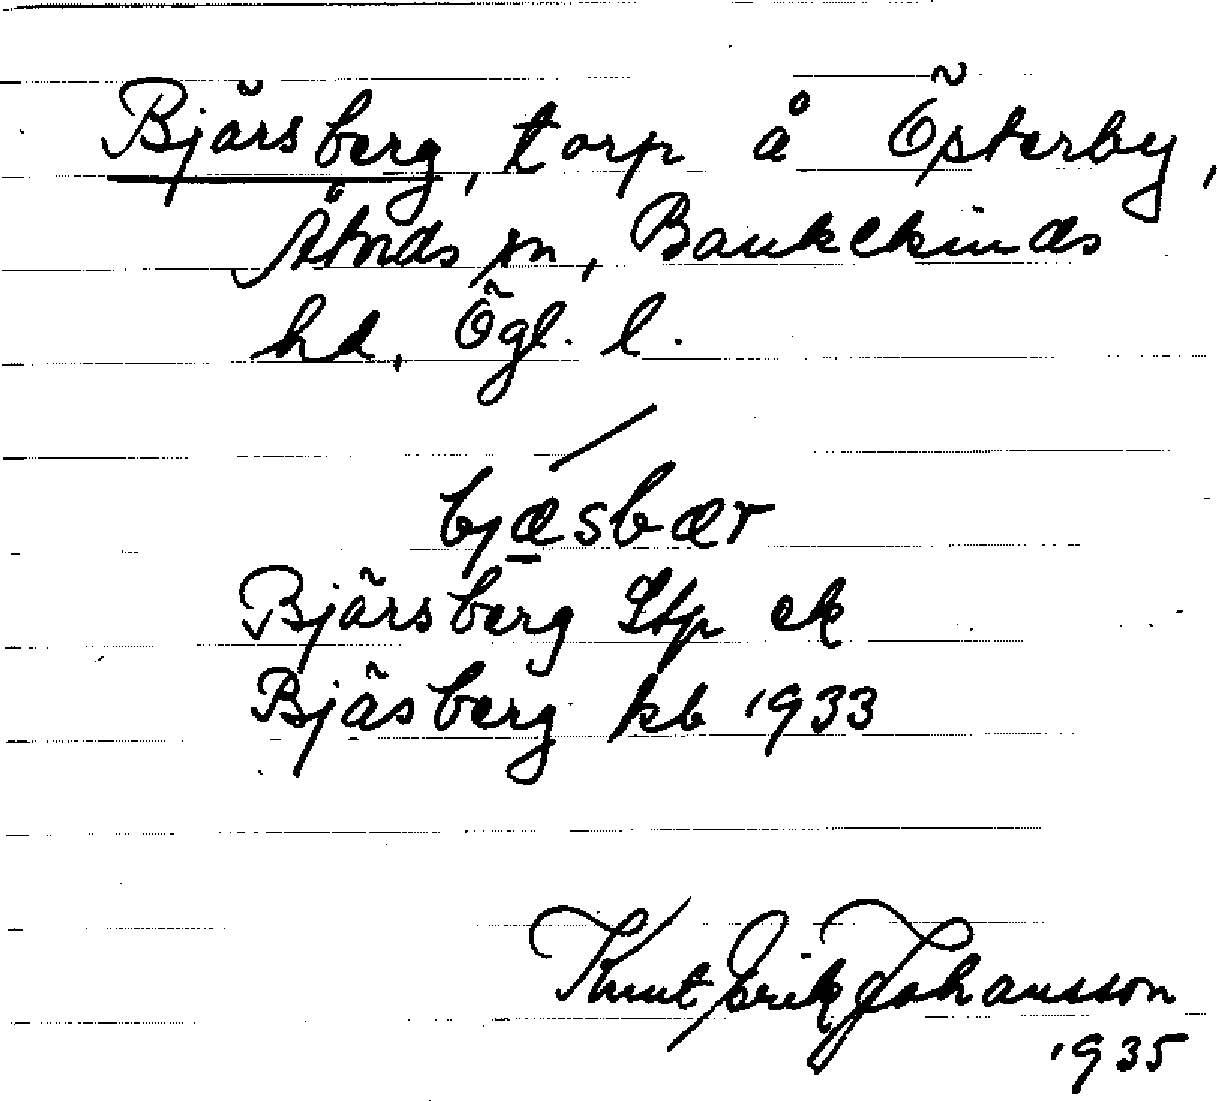 Bjärsberg, torp å Österby,
Åtvids sn, Bankekinds
hd, Ögl. l.
bjæsbær
Bjärsberg Stp ek
Bjäsberg kb 1933
Knut Erik Johansson
1935